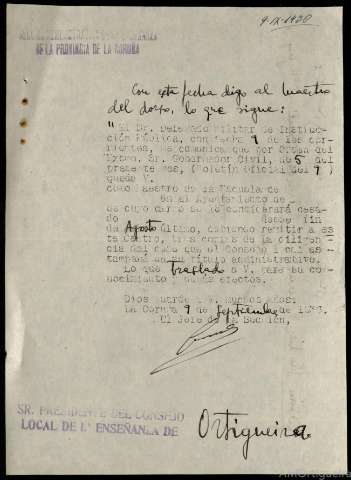 9-IX-1938
DE LA PROVINCIA DE LA CORUÑA
Con esta fecha digo al maestro
del dorso, lo que sigue:
"El Sr. Delegado Militar de Instruc-
ción Pública, con fecha 9 de los co-
rrientes, me comunica que por Orden del
Excmo. Sr. Gobernador Civil, de 5 del
presente mes, (Boletín Oficial del 7)
quedó V.
como Maestro de la Escuela de
en el Ayuntamiento de
de cuyo cargo se le considerará cesa-
do desde fin
de Agosto último, debiendo remitir a es
te Centro, tres copias de la diligen-
cia del cese que el Consejo Local es-
tampará en su título administrativo.
Lo que traslado a V. para su co-
nocimiento y demás efectos.
Dios guarde a V. muchos años.
La Coruña 9 de Septiembre de
El Jefe de la Sección,
SR. PRESIDENTE DEL CONSEJO
LOCAL DE 1ª ENSEÑANZA DE
Ortigueira
AMOrtigueira